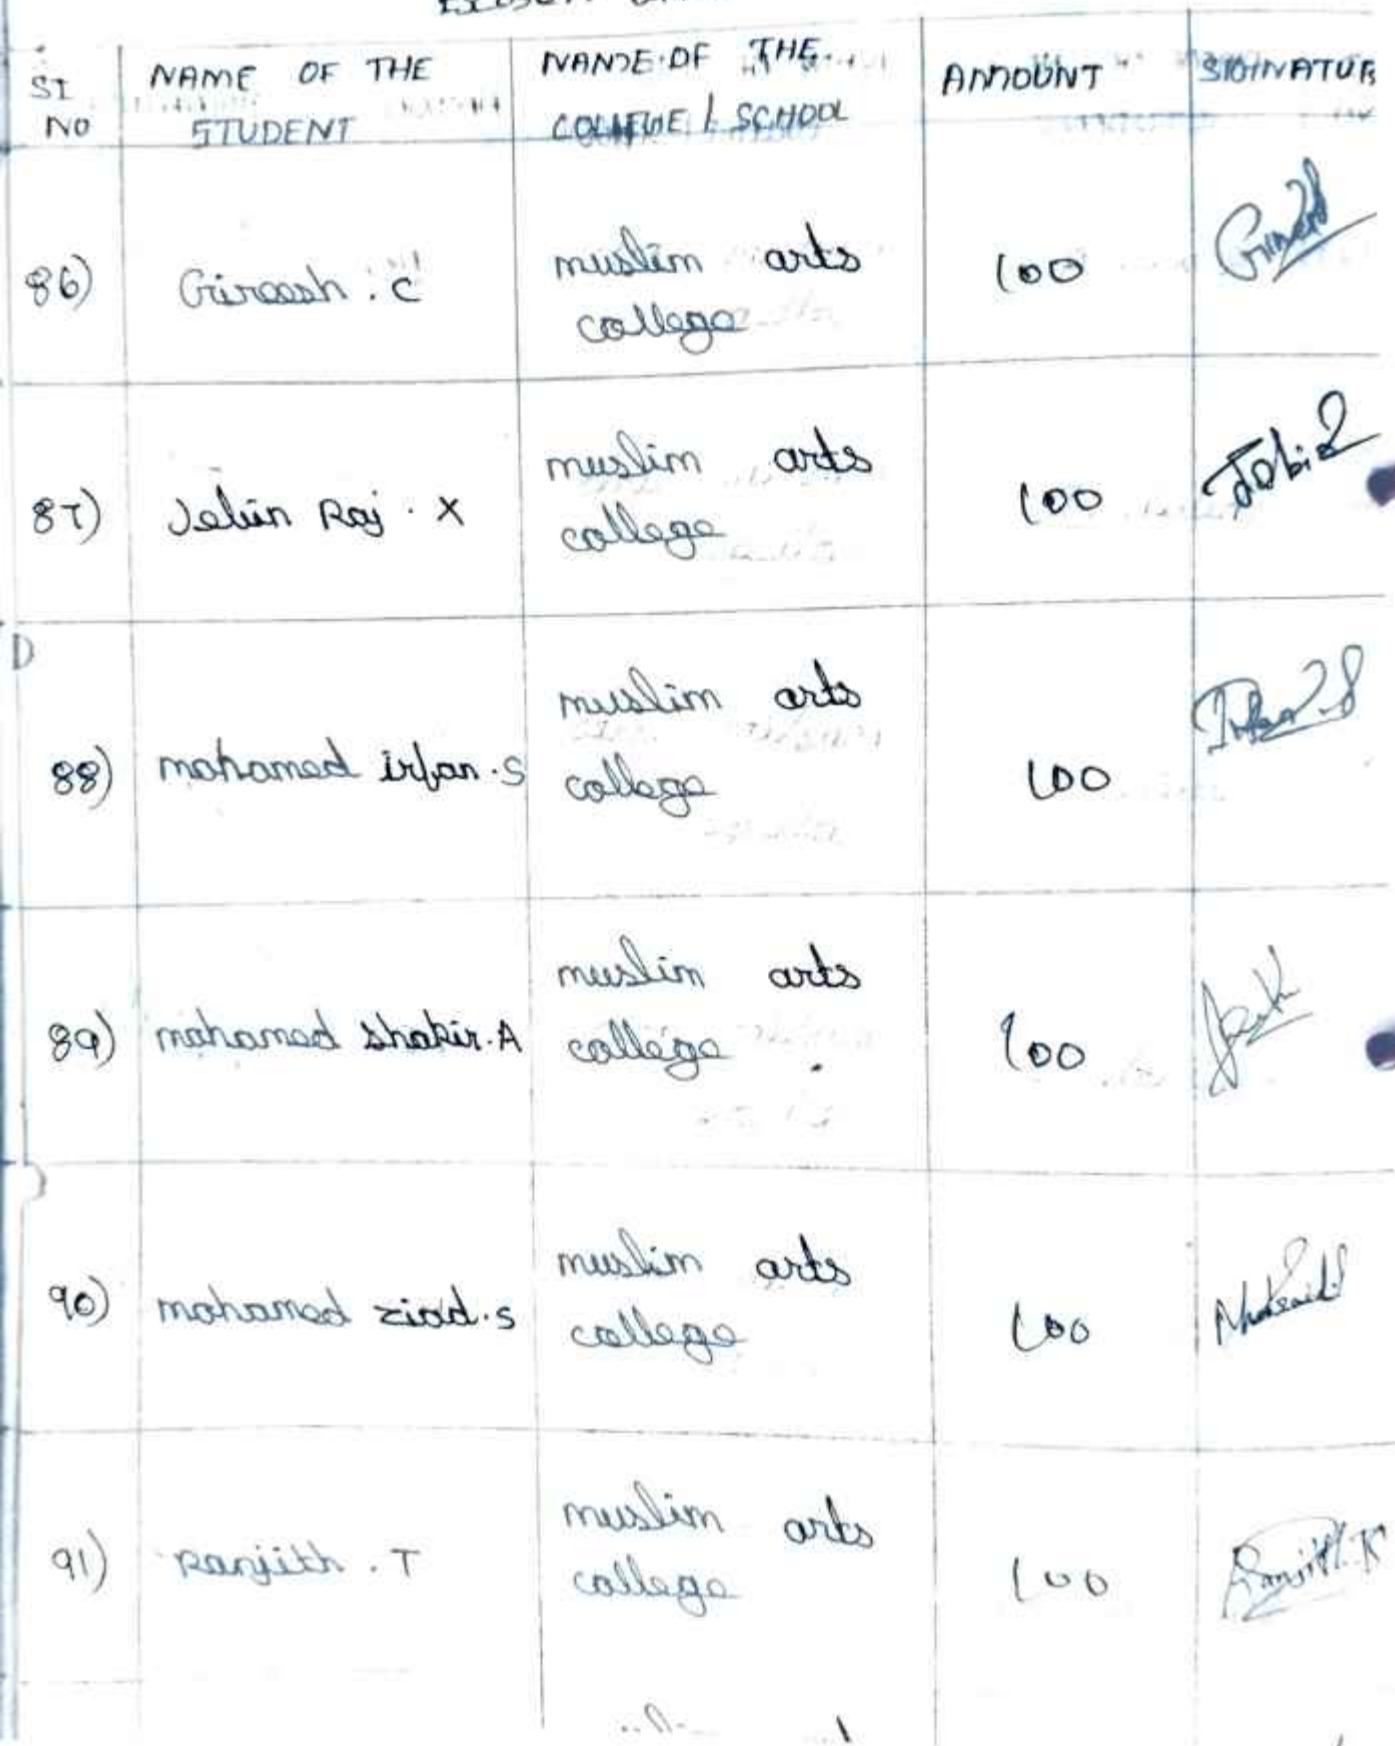 SI NO
NAME OF THE STUDENT
NAME OF THE COLLEGE / SCHOOL
AMOUNT
SIGINATUR
86) Gireesh . C muslim arts college 100
87) Jebin Raj . X muslim arts college 100
88) mohamed irfan . S muslim arts college 100
89) mohamed shakir . A muslim arts college 100
90) mohamed ziad . s muslim arts college 100
91) Ranjith . T muslim arts college 100 Ranjith.K